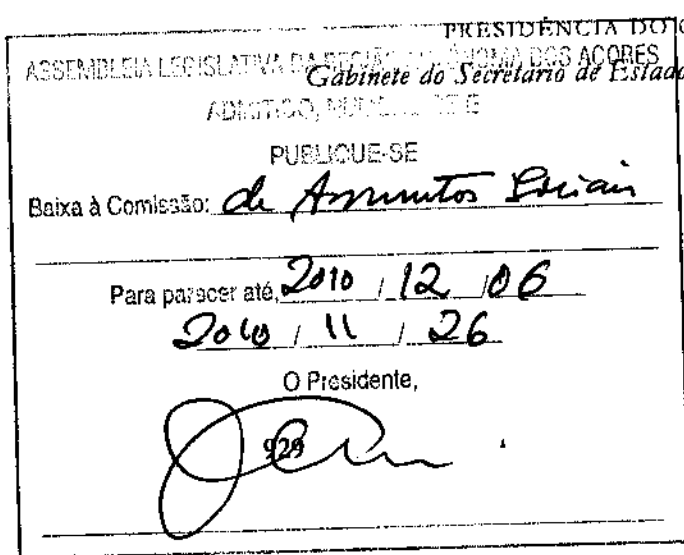 PRESIDÊNCIA DO
ASSEMBLEIA LEGISLATIVA DA REGIÃO AUTÓNOMA DOS AÇORES
Gabinete do Secretário de Estado
ADMITIDO,
PUBLIQUE-SE
Baixa à Comissão: de Assuntos Sociais
Para parecer até, 2010 / 12 / 06
2010 / 11 / 26
O Presidente,
929